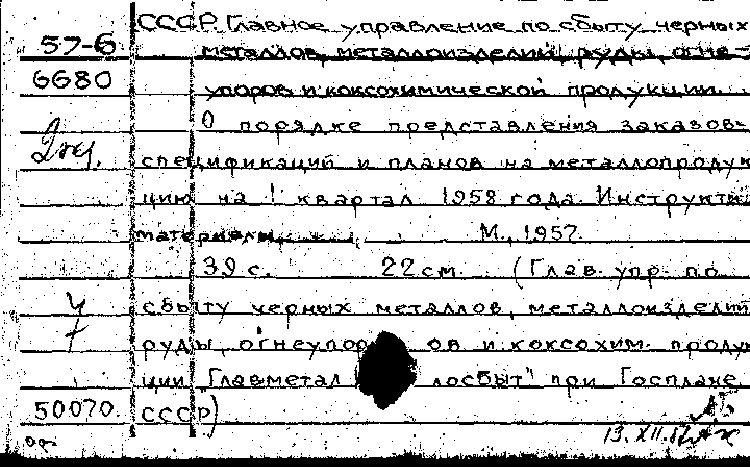 СССР. Главное управление по сбыту черных
57-6
металлов, металлоизделий, руды, огне-
6680
упоров и коксохимической продукции.
О порядке представления заказов-
2эк.
спецификаций и планов на металлопродук
цию на I квартал 1958 года. Инструкти
материалы. М., 1957.
39 с. 22 см (Глав. упр. по
сбыту черных металлов, металлоизделий
руды, огнеупоров и коксохим. проду
ции "Главметаллосбыт" при Госплане
50070. СССР)
13.XII.57